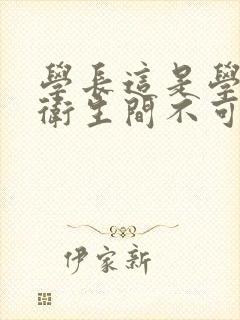 學長這是學
衛生間不可
伊家新